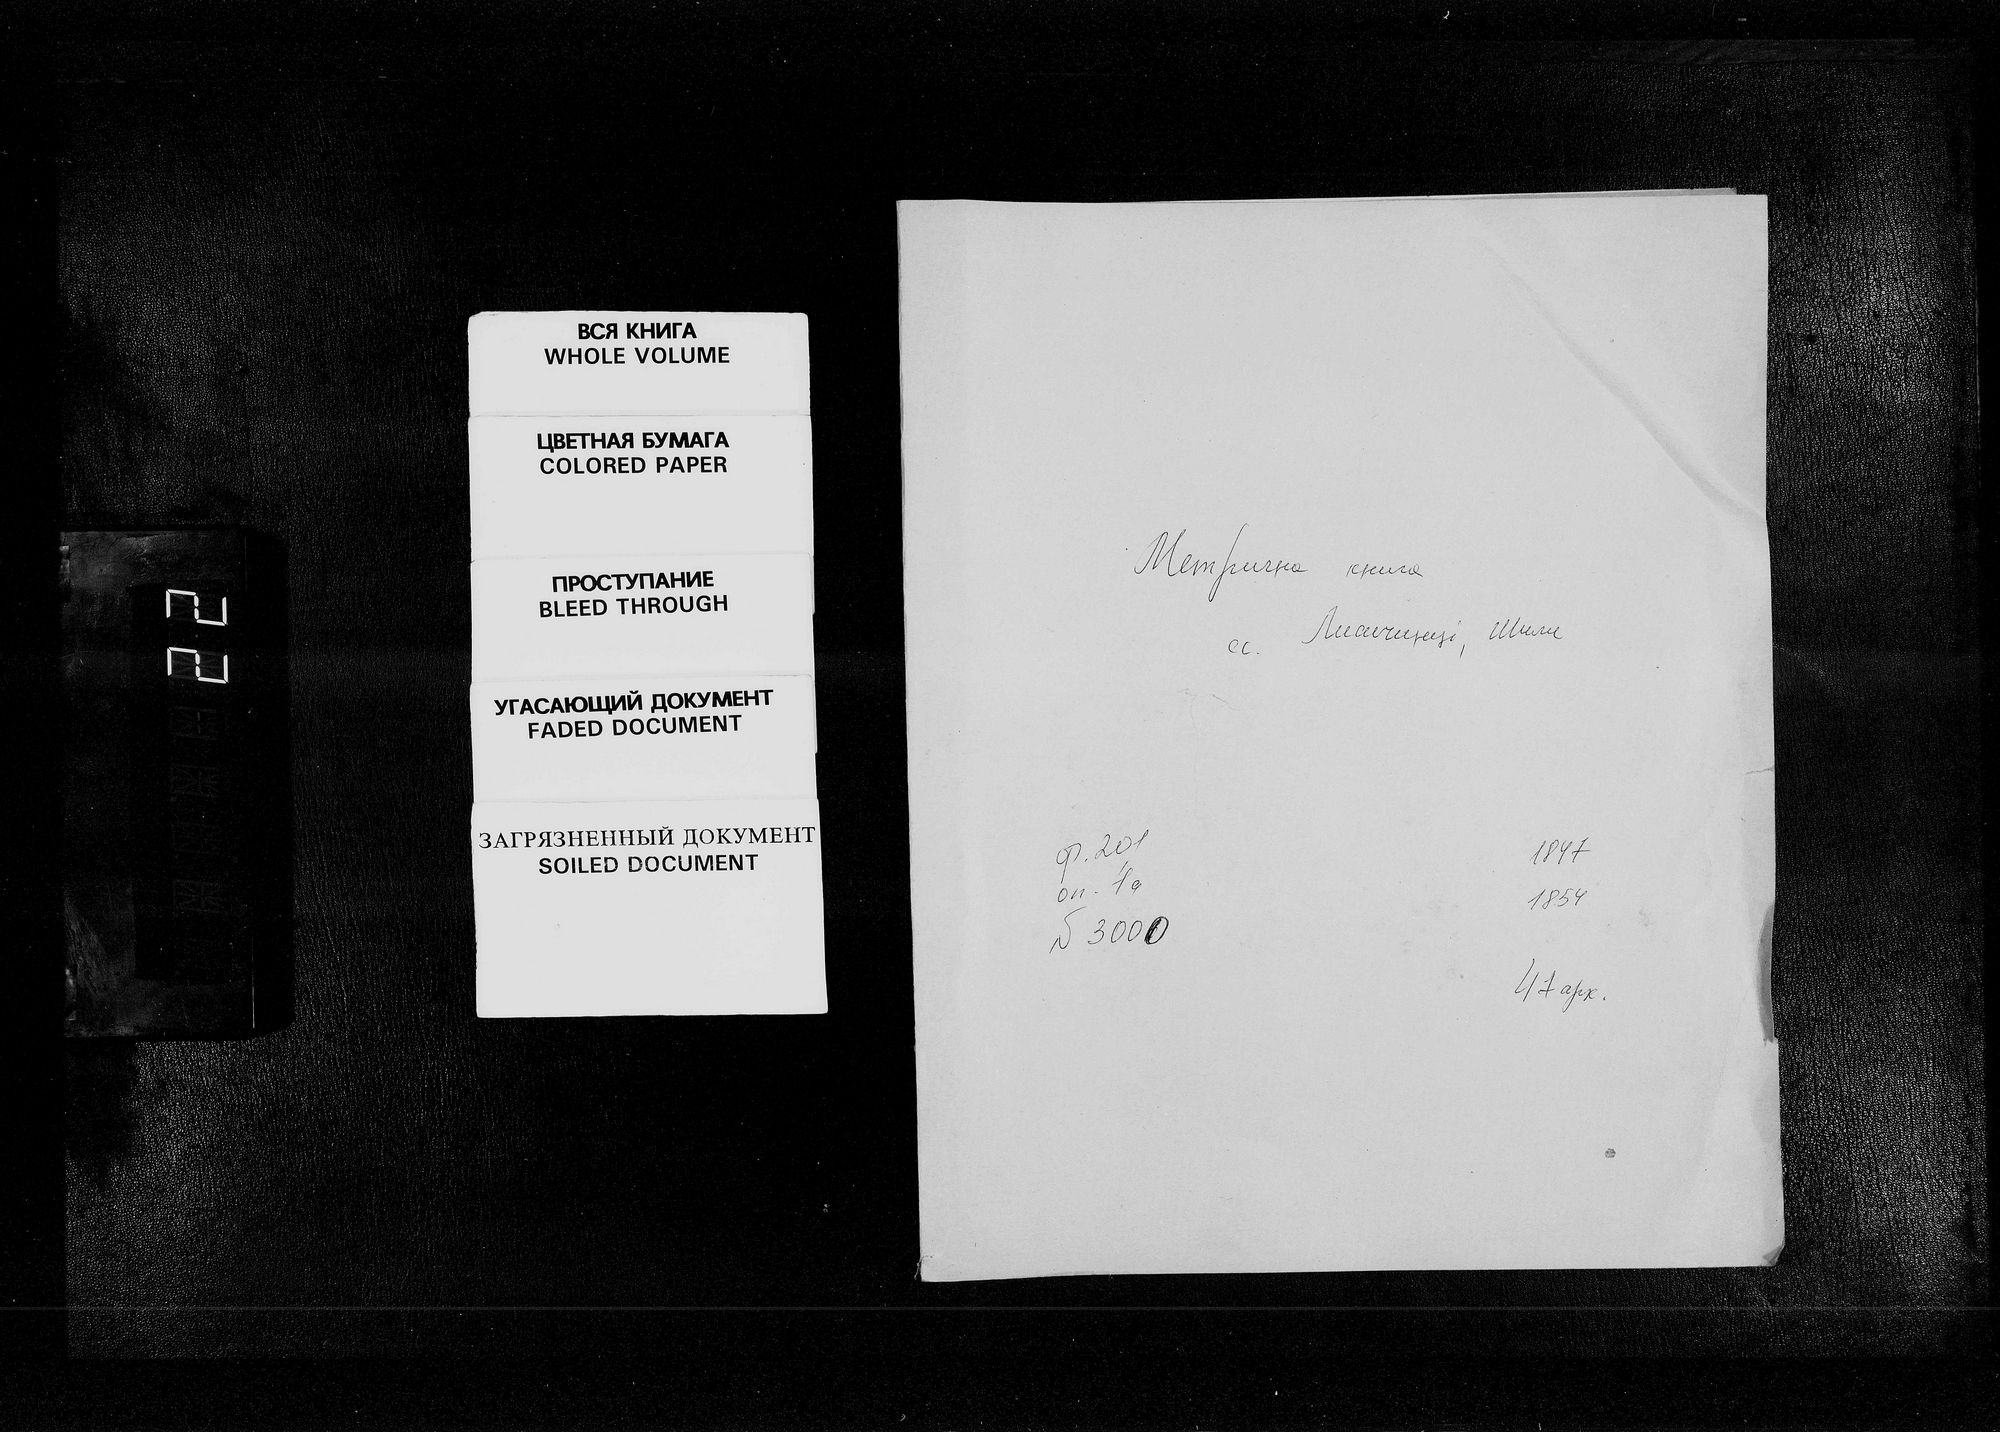 ВСЯ КНИГА
WHOLE VOLUME
ЦВЕТНАЯ БУМАГА
COLORED PAPER
ПРОСТУПАНИЕ
BLEED THROUGH
УГАСАЮЩИЙ ДОКУМЕНТ
FADED DOCUMENT
ЗАГРЯЗНЕННЫЙ ДОКУМЕНТ
SOILED DOCUMENT
Метрична книга
сс. Лисичинці, Шили
ф. 201
оп. 4а
№ 3000
1847
1854
47 арк.
22